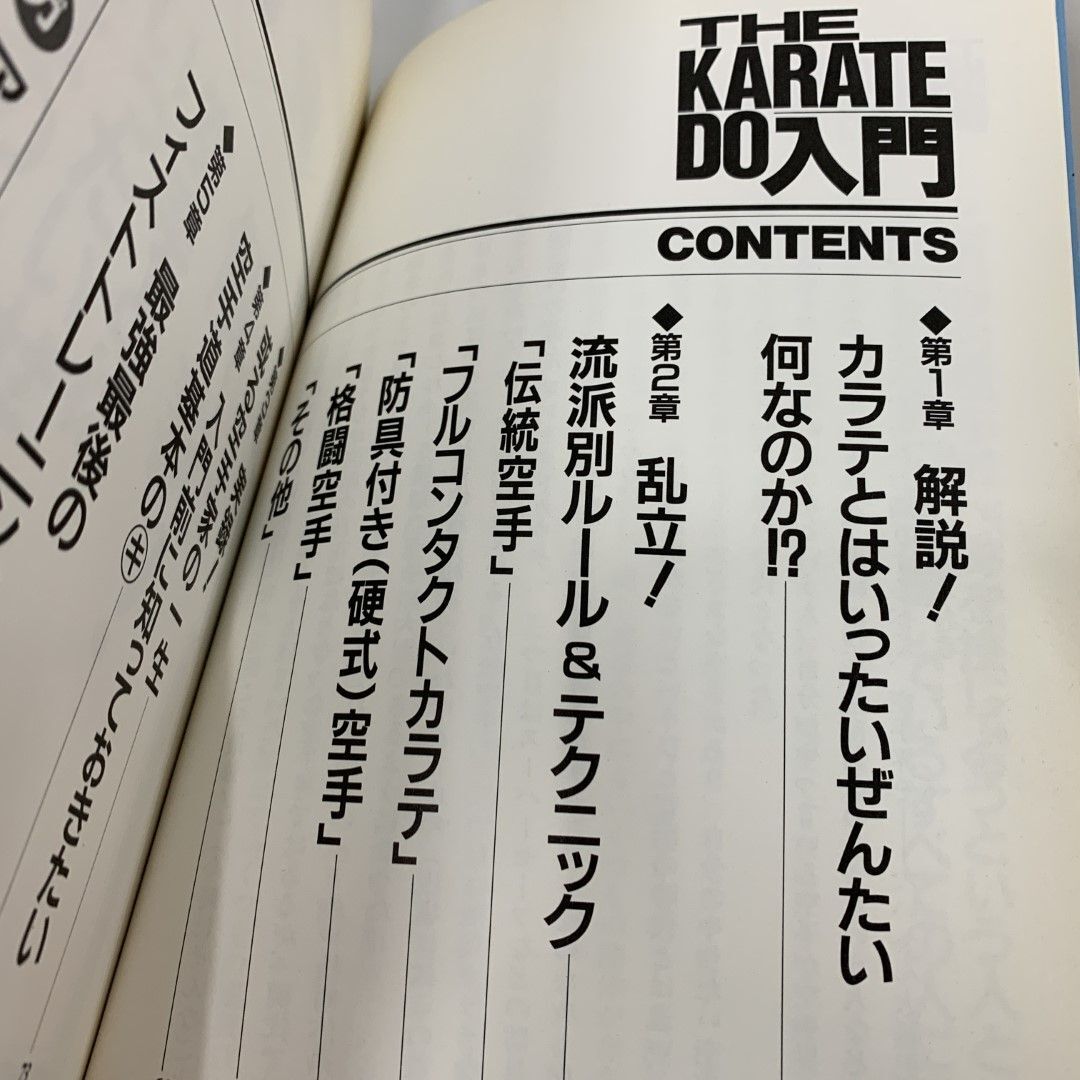 THE
KARATE
DO入門
CONTENTS
◆第1章 解説!
カラテとはいったいぜんたい
何なのか!?
◆第2章 乱立!
流派別ルール&テクニック
「伝統空手」
「フルコンタクトカラテ」
「防具付き(硬式)空手」
「格闘空手」
「その他」
◆第4章 入門前に知っておきたい
空手道基本の㋖
◆第5章 最強最後の